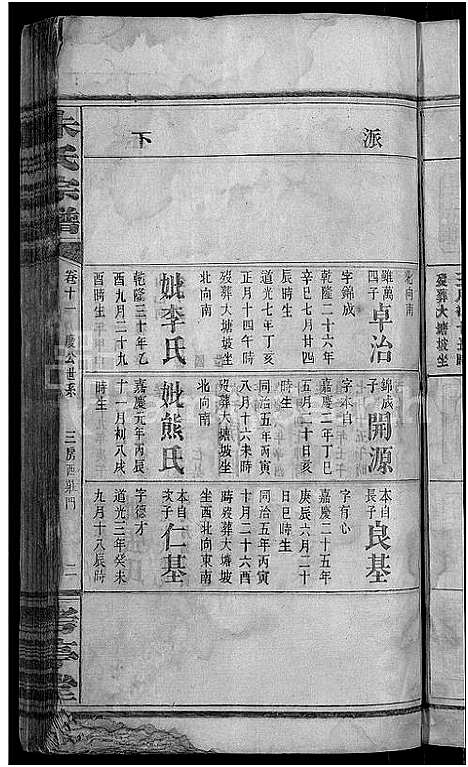 派下
北向南
雖萬四子
卓治
字錦成
乾隆二十六年
辛巳七月廿四
辰時生
道光七年丁亥
正月十四午時
歿葬大塘坡坐
北向南
妣李氏
乾隆三十年乙
酉九月二十九
酉時生
錦成子
開源
字本自
嘉慶二年丁巳
五月二十日亥
時生
同治五年丙寅
八月十六未時
歿葬大塘坡坐
北向南
妣熊氏
嘉慶元年丙辰
十一月初八戌
時生
本自長子
良基
字有心
嘉慶二十五年
庚辰六月二十
日巳時生
同治五年丙寅
十月二十六酉
時歿葬大塘坡
坐西北向東南
本自次子
仁基
字德才
道光三年癸未
九月十八辰時
朱氏宗譜
卷十一
慶公世系
三房西巢門
二
考亭堂
歿葬大塘坡坐